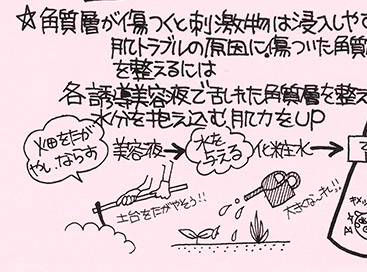 ☆角質層が傷つくと刺激物は浸入しやす
肌トラブルの原因に。傷ついた角質
を整えるには
各誘導美容液で乱れた角質層を整え
水分を抱え込む肌力をUP
畑をたが
やし、ならす
美容液→
水を
与える
化粧水→
土台をたがやそう!!
大きくな〜れ!!